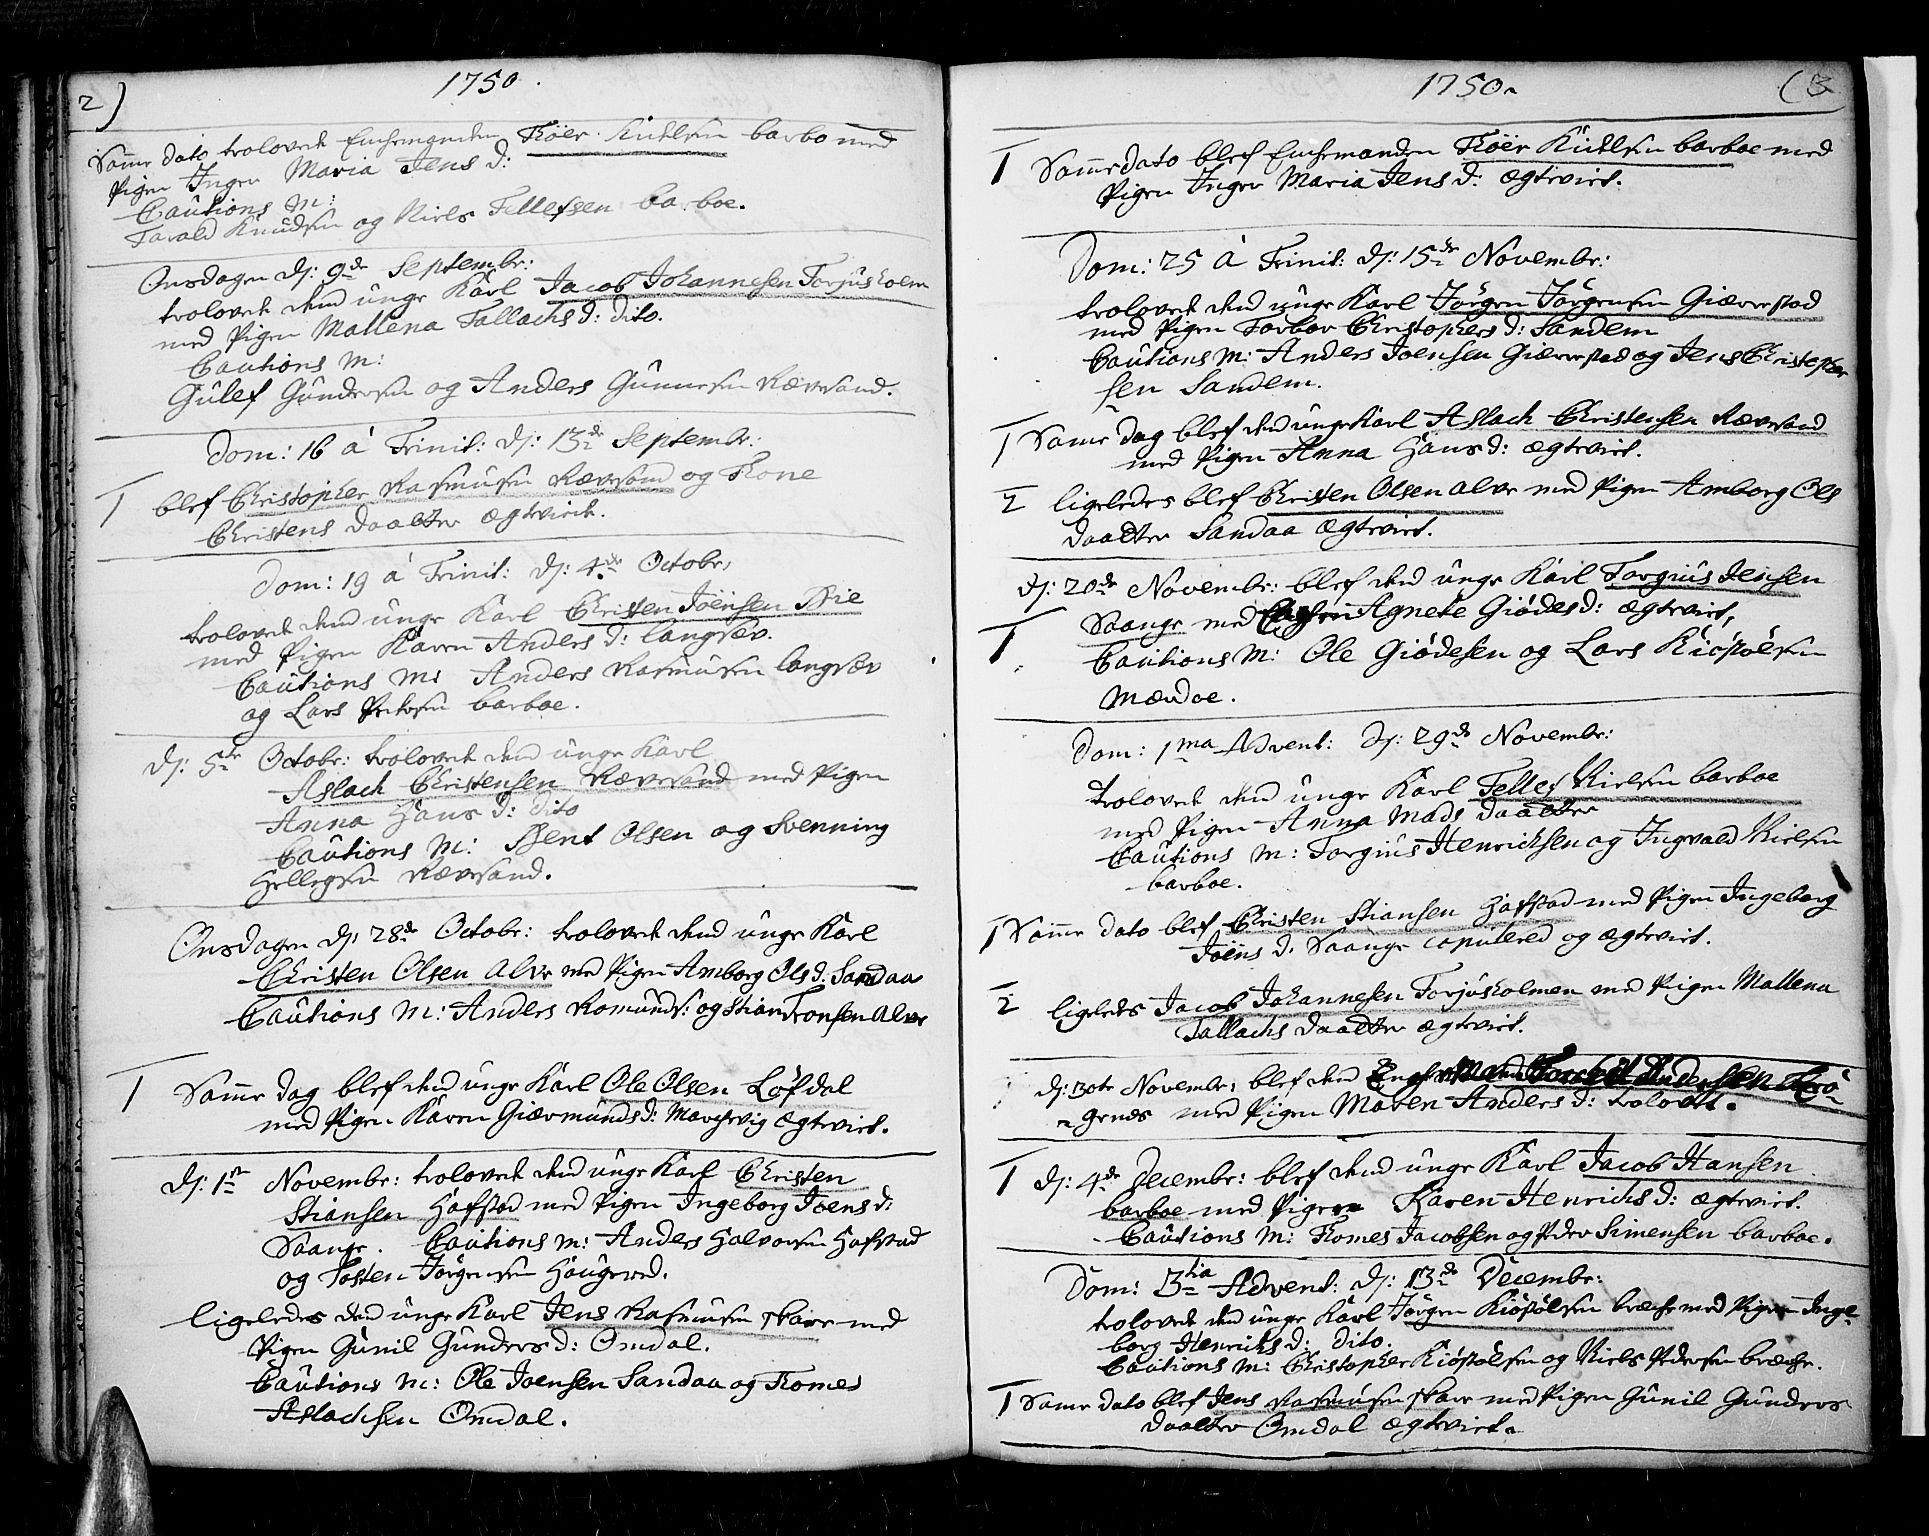 2)
1750.
Samme dato trolovet Enchemanden Thöer Kittelsen barbo med
Pigen Inger Maria Jens d:
Cautions M:
Tarald Knudsen og Niels Tellefsen barboe.
Onsdagen d: 9de Septembr:
trolovet dend unge Karl Jacob Johannesen Torjusholm
med Pigen Mallena Tallachs d: dito.
Cautions M:
Gulef Gundersen og Anders Gunnersen Rævesand.
Dom: 16 à Trinit: d: 13de Septembr:
1 blef Christopher Rasmusen Rævesand og Thone
Christens daatter ægteviet.
Dom: 19 à Trinit: d: 4de Octobr:
trolovet dend unge Karl Christen Joensen Bie
med Pigen Karen Anders d: langsæv.
Cautions M: Anders Rasmusen langsæv
og Lars Pedersen barboe.
d: 5te Octobr: trolovet dend unge Karl
Aslach Christensen Rævesand med Pigen
Anna Hans d: dito
Cautions M: Bent Olsen og Svenning
Hellegsen Rævesand.
Onsdagen d: 28de Octobr: trolovet dend unge Karl
Christen Olsen Alve med Pigen Amborg Ols d: Sandaa
Cautions M: Anders Romunds: og Stian Tronsen Alve
1 Samme dag blef dend unge Karl Ole Olsen Löfdal
med Pigen Karen Giærmunds d: Marchevig ægteviet.
d: 1ste Novembr: trolovet dend unge Karl Christen
Stiansen Hafstad med Pigen Ingeborg Joens d:
Saange. Cautions M: Anders Halvorsen Hafstad
og Tosten Jørgensen Haugered.
ligeledes dend unge Karl Jens Rasmusen Skare med
Pigen Gunil Gunders d: Omdal.
Cautions M: Ole Joensen Sandaa og Thomes
Aslachsen Omdal.
1750.
(3
1 Samme dato blef Enchemanden Thöer Kittelsen barboe med
Pigen Inger Maria Jens d: ægteviet.
Dom: 25 à Trinit: d: 15de Novembr:
trolovet dend unge Karl Jørgen Jørgensen Giæverstad
med Pigen Torbor Christophers d: Sandem
Cautions M: Anders Joensen Giæverstad og Jens Christopher
sen Sandem.
1 Samme dag blef dend unge Karl Aslach Christensen Rævesand
med Pigen Anna Hans d: ægteviet.
2 ligeledes blef Christen Olsen Alve med Pigen Amborg Ols
daatter Sandaa ægteviet.
d: 20de Novembr: blef dend unge Karl Torgius Jensen
1 Saange med Agnete Giödes d: ægteviet,
Cautions M: Ole Giödesen og Lars Kiöstölsen
Mærdoe.
Dom: 1ma Advent: d: 29de Novembr:
trolovet dend unge Karl Tellef Nielsen barboe
med Pigen Anna Mads daatter
Cautions M: Torgius Henrichsen og Ingvald Nielsen
barboe.
1 Samme dato blef Christen Stiansen Hafstad med Pigen Ingeborg
Joens d: Saange copulered og ægteviet.
2 ligeledes Jacob Johannesen Torjusholmen med Pigen Mallena
Tallachs daatter ægteviet.
d: 30te Novembr: blef dend Enchemand Andersen
genes med Pigen Maren Anders d: trolovet.
1 d: 4de Decembr: blef dend unge Karl Jacob Hansen
barboe med Pigen Karen Henrichs d: ægteviet.
Cautions M: Thomes Jacobsen og Peder Simensen barboe.
Dom: 3tia Advent: d: 13de Decembr:
trolovet dend unge Karl Jörgen Kiöstölsen bræche med Pigen Inge
borg Henrichs d: dito.
Cautions M: Christopher Kiöstölsen og Niels Pedersen bræche.
1 Samme dato blef Jens Rasmusen Skare med Pigen Gunil Gunders
daatter Omdal ægteviet.